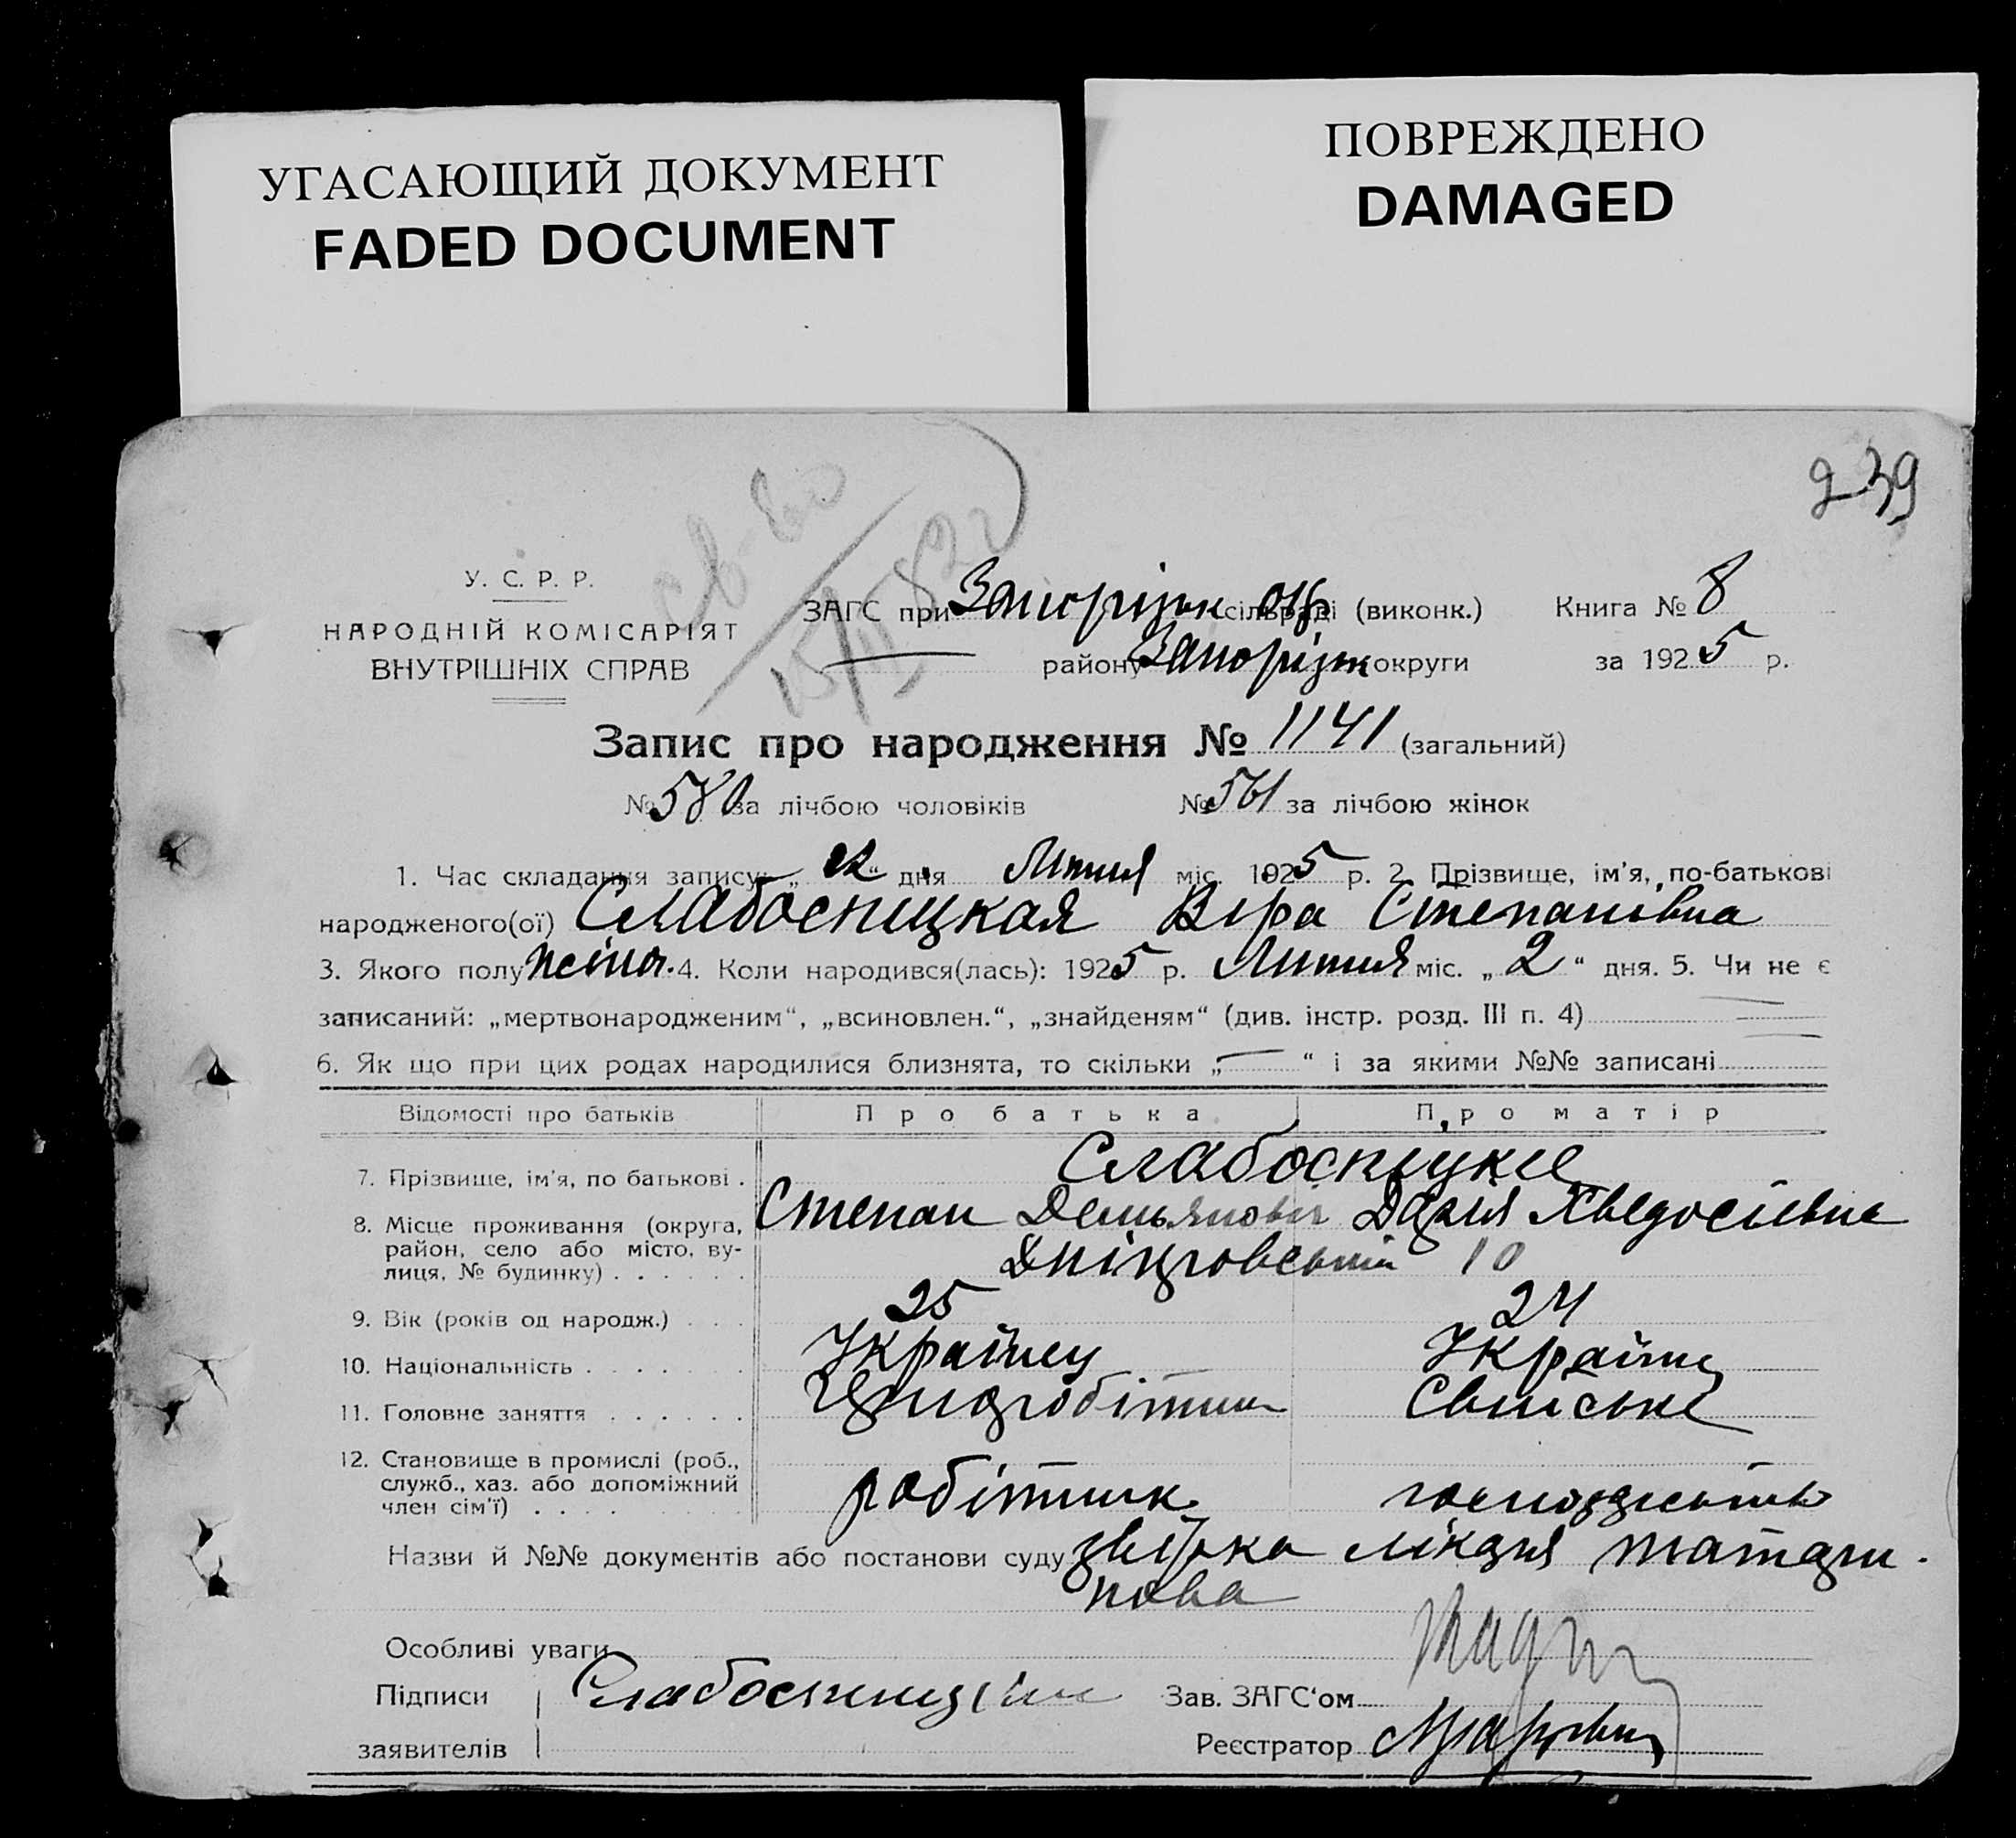 УГАСАЮЩИЙ ДОКУМЕНТ
FADED DOCUMENT
ПОВРЕЖДЕНО
DAMAGED
239
У. С. Р. Р.
НАРОДНІЙ КОМІСАРІЯТ
ВНУТРІШНІХ СПРАВ
ЗАГС при Запоріжк сільраді (виконк.) Книга № 8
району Запоріжк округи за 1925 р.
Запис про народження № 1141 (загальний)
№ 580 за лічбою чоловіків № 561 за лічбою жінок
1. Час складання запису: „ “ дня Липня міс. 1925 р. 2. Прізвище, ім'я, по-батькові
народженого(ої) Слабоспицкая Віра Степанівна
3. Якого полу жіноч. 4. Коли народився(лась): 1925 р. Липня міс. „ 2 “ дня. 5. Чи не є
записаний: „мертвонародженим“, „всиновлен.“, „знайденям“ (див. інстр. розд. III п. 4)
6. Як що при цих родах народилися близнята, то скільки „ — “ і за якими №№ записані
Відомості про батьків Про батька Про матір
7. Прізвище, ім'я, по батькові . Слабоспицкие
Степан Демьянович Дарья Хведосіевна
8. Місце проживання (округа,
район, село або місто, ву-
лиця, № будинку) . . . . . . Дніпровський 10
9. Вік (років од народж.) . . . 25 24
10. Національність . . . . . . . Українец Україн
11. Головне заняття . . . . . .
12. Становище в промислі (роб.,
служб., хаз. або допоміжний
член сім'ї) . . . . робітник
Назви й №№ документів або постанови суду лікаря
Особливі уваги
Підписи Слабоспицкий Зав. ЗАГС'ом
заявителів Реєстратор